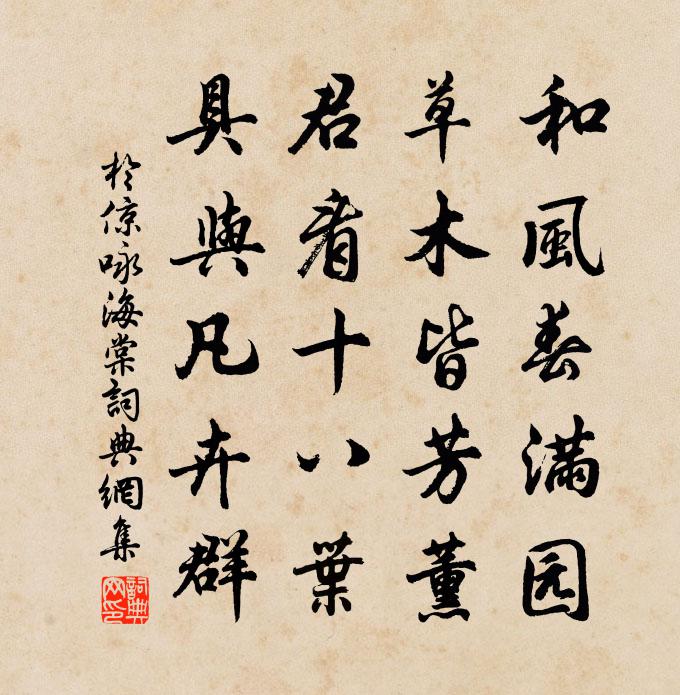 和風春滿园
草木皆芳薰
君看十八葉
具與凡卉群
於倞咏海棠詞典網集
詞典网印